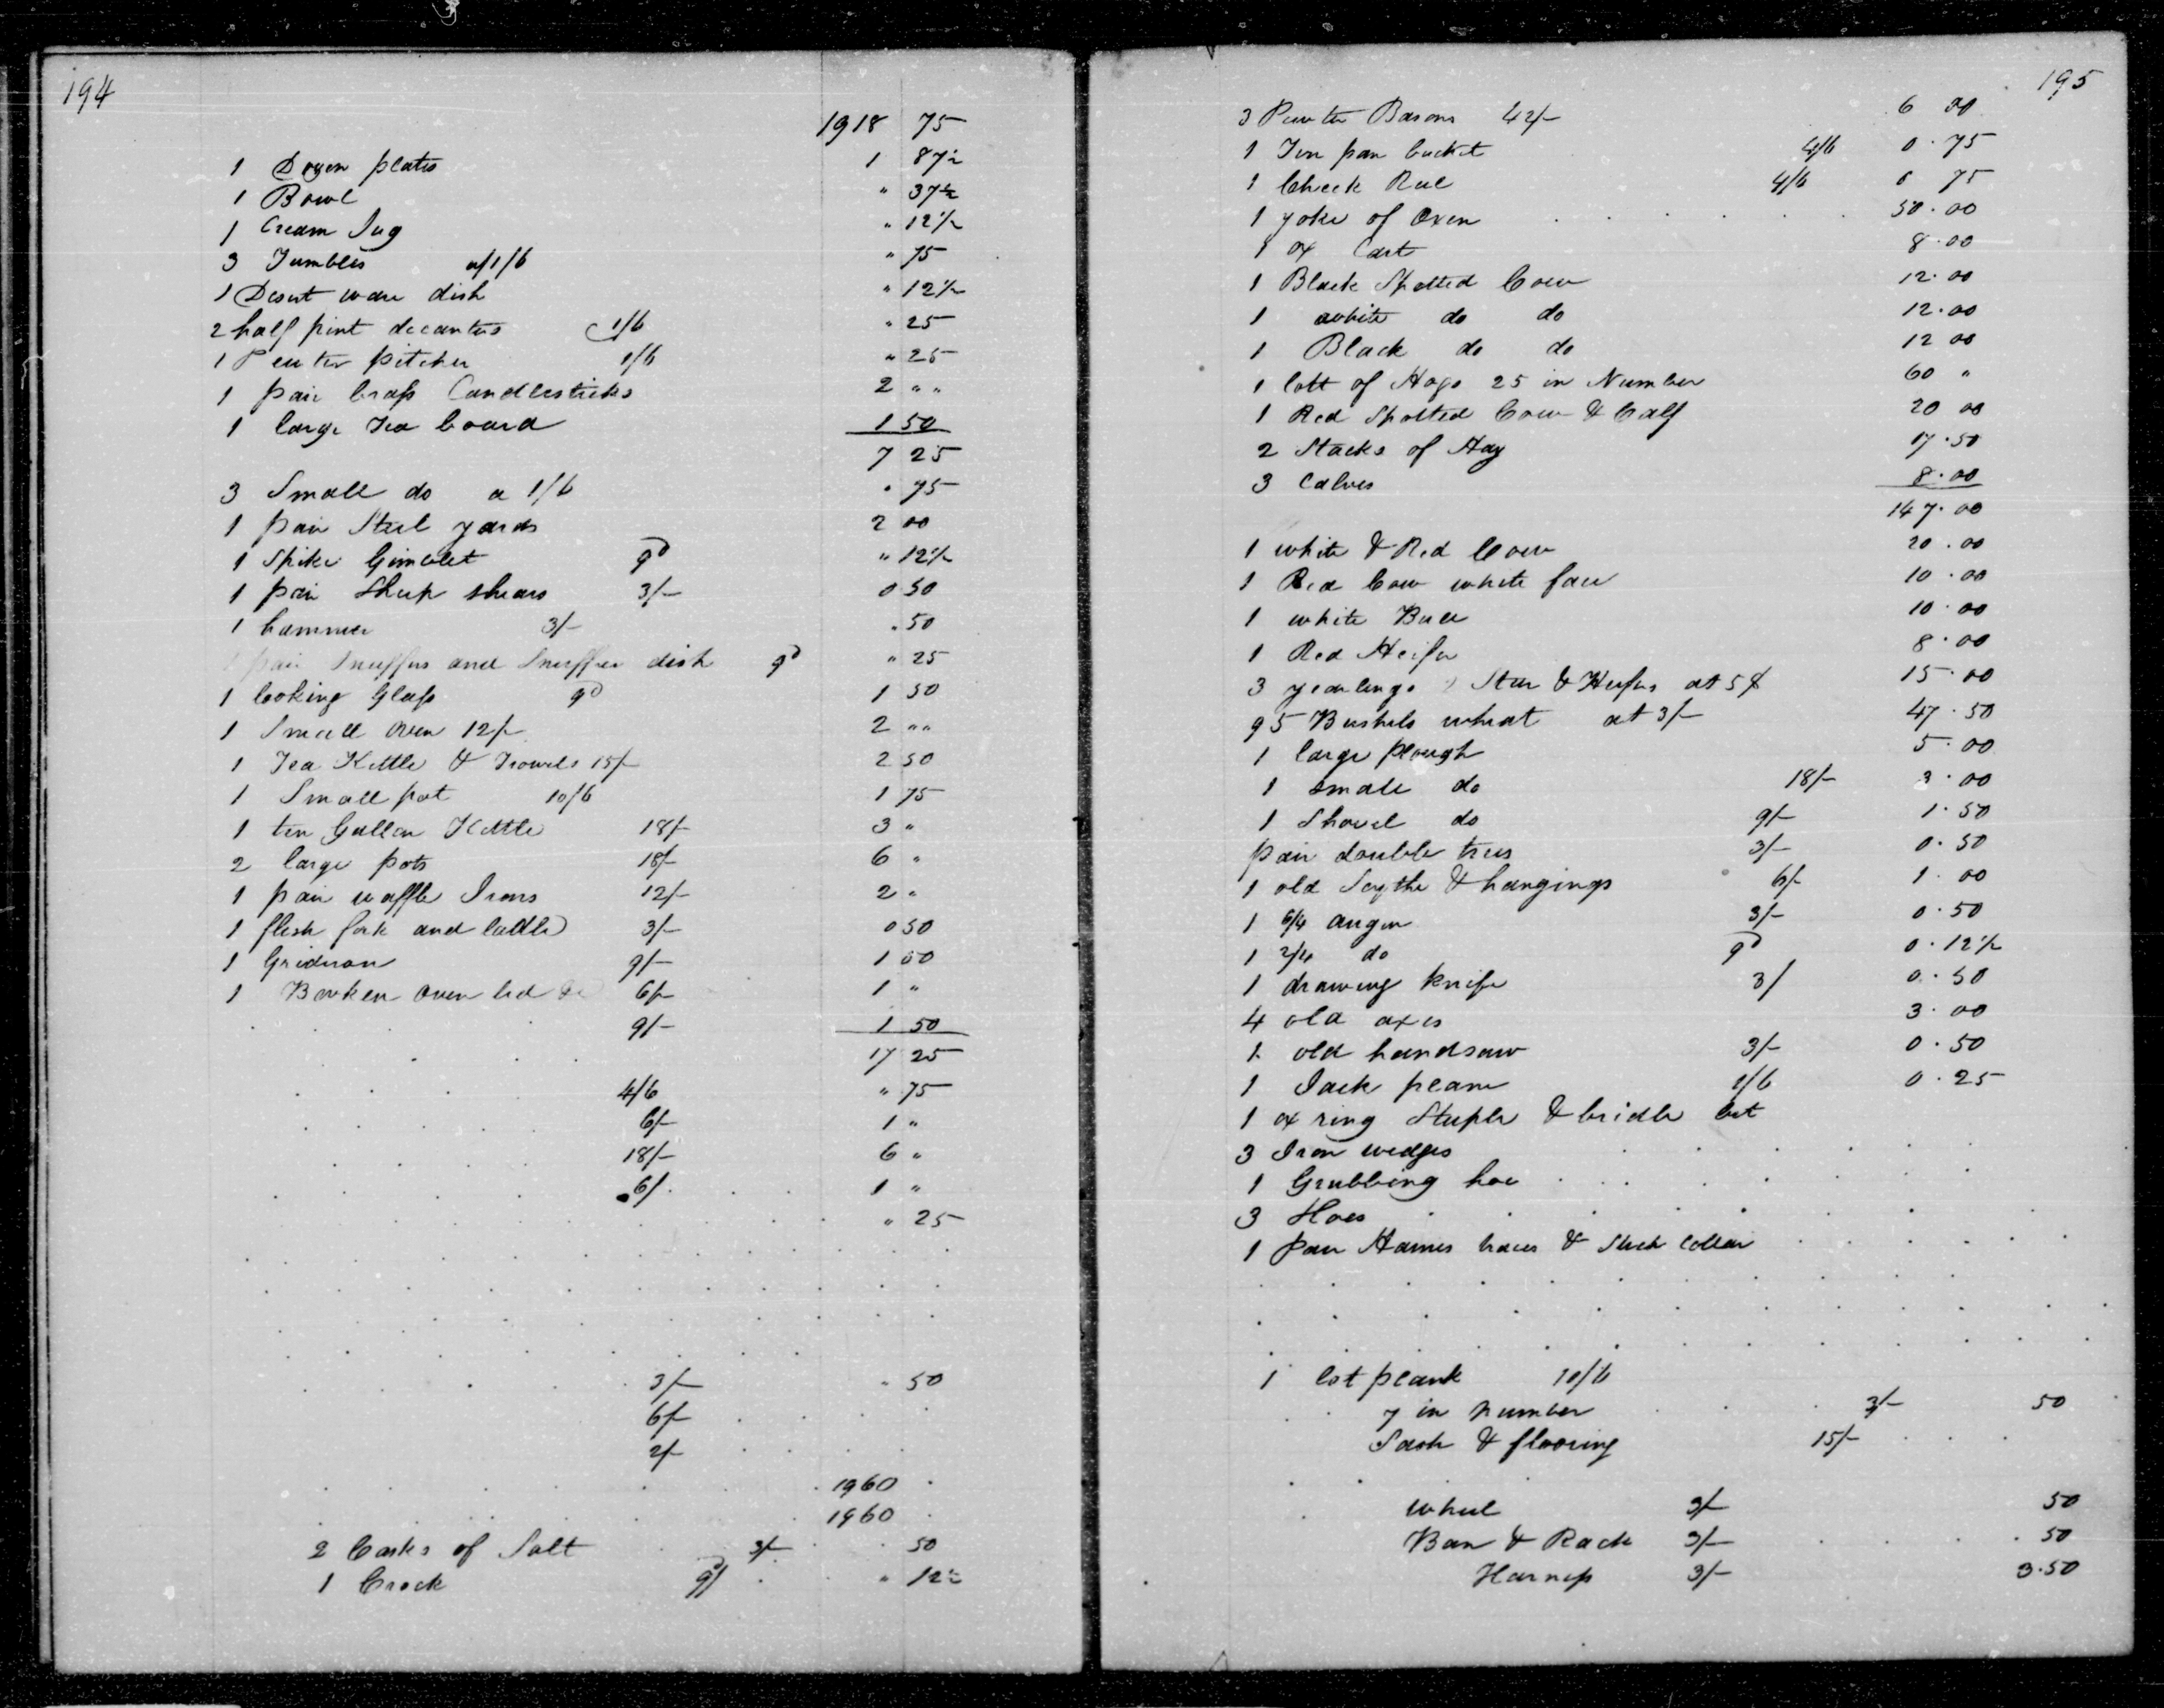 194
1918 75
1 Dozen plates 1 87½
1 Bowl " 37½
1 Cream Jug " 12½
3 Tumbles a 1/6 " 75
1 Desert ware dish " 12½
2 half pint decanters 1/6 " 25
1 Pewter pitcher 1/6 " 25
1 pair brass Candlesticks 2 " "
1 large Tea board 1 50
7 25
3 Small do a 1/6 " 75
1 pair Steel yards 2 00
1 Spike Gimblet 9d " 12½
1 pair Sheep shears 3/- 0 50
1 hammer 3/- " 50
1 pair Snuffers and Snuffer dish 9d " 25
1 looking Glass 9d 1 50
1 Small oven 12/- 2 " "
1 Tea Kettle & Trowels 15/- 2 50
1 Small pot 10/6 1 75
1 ten Gallon Kettle 18/- 3 "
2 large pots 18/- 6 "
1 pair waffle Irons 12/- 2 "
1 flesh fork and ladle 3/- 0 50
1 Gridiron 9/- 1 50
1 Broken oven lid 6/- 1 "
9/- 1 50
17 25
4/6 " 75
6/- 1 "
18/- 6 "
6/- 1 "
" 25
3/- " 50
6/-
2/-
1960
1960
2 Casks of Salt 3/- 50
1 Crock 9d " 12½
195
3 Pewter Basons 42/- 6 00
1 Tin pan bucket 4/6 0.75
1 Check Reel 4/6 0 75
1 yoke of Oxen 50.00
1 ox Cart 8.00
1 Black Spotted Cow 12.00
1 white do do 12.00
1 Black do do 12 00
1 lott of Hogs 25 in Number 60 "
1 Red Spotted Cow & Calf 20 00
2 Stacks of Hay 17.50
3 Calves 8.00
147.00
1 white & Red Cow 20.00
1 Red Cow white face 10.00
1 white Bull 10.00
1 Red Heifer 8.00
3 yearlings Steer & Heifers at 5$ 15.00
95 Bushels wheat at 3/- 47.50
1 large plough 5.00
1 small do 18/- 3.00
1 Shovel do 9/- 1.50
pair double trees 3/- 0.50
1 old Scythe & hangings 6/- 1.00
1 6/4 auger 3/- 0.50
1 2/4 do 9d 0.12½
1 drawing knife 3/ 0.50
4 old axes 3.00
1 old handsaw 3/- 0.50
1 Jack plane 1/6 0.25
1 ox ring Staple & bridle bit
3 Iron wedges
1 Grubbing hoe
3 Hoes
1 pair Hames traces & Stick Collar
1 lot plank 10/6
7 in number 3/- 50
Sash & flooring 15/-
wheel 3/- 50
Ban & Rack 3/- 50
Harness 3/- 3.50